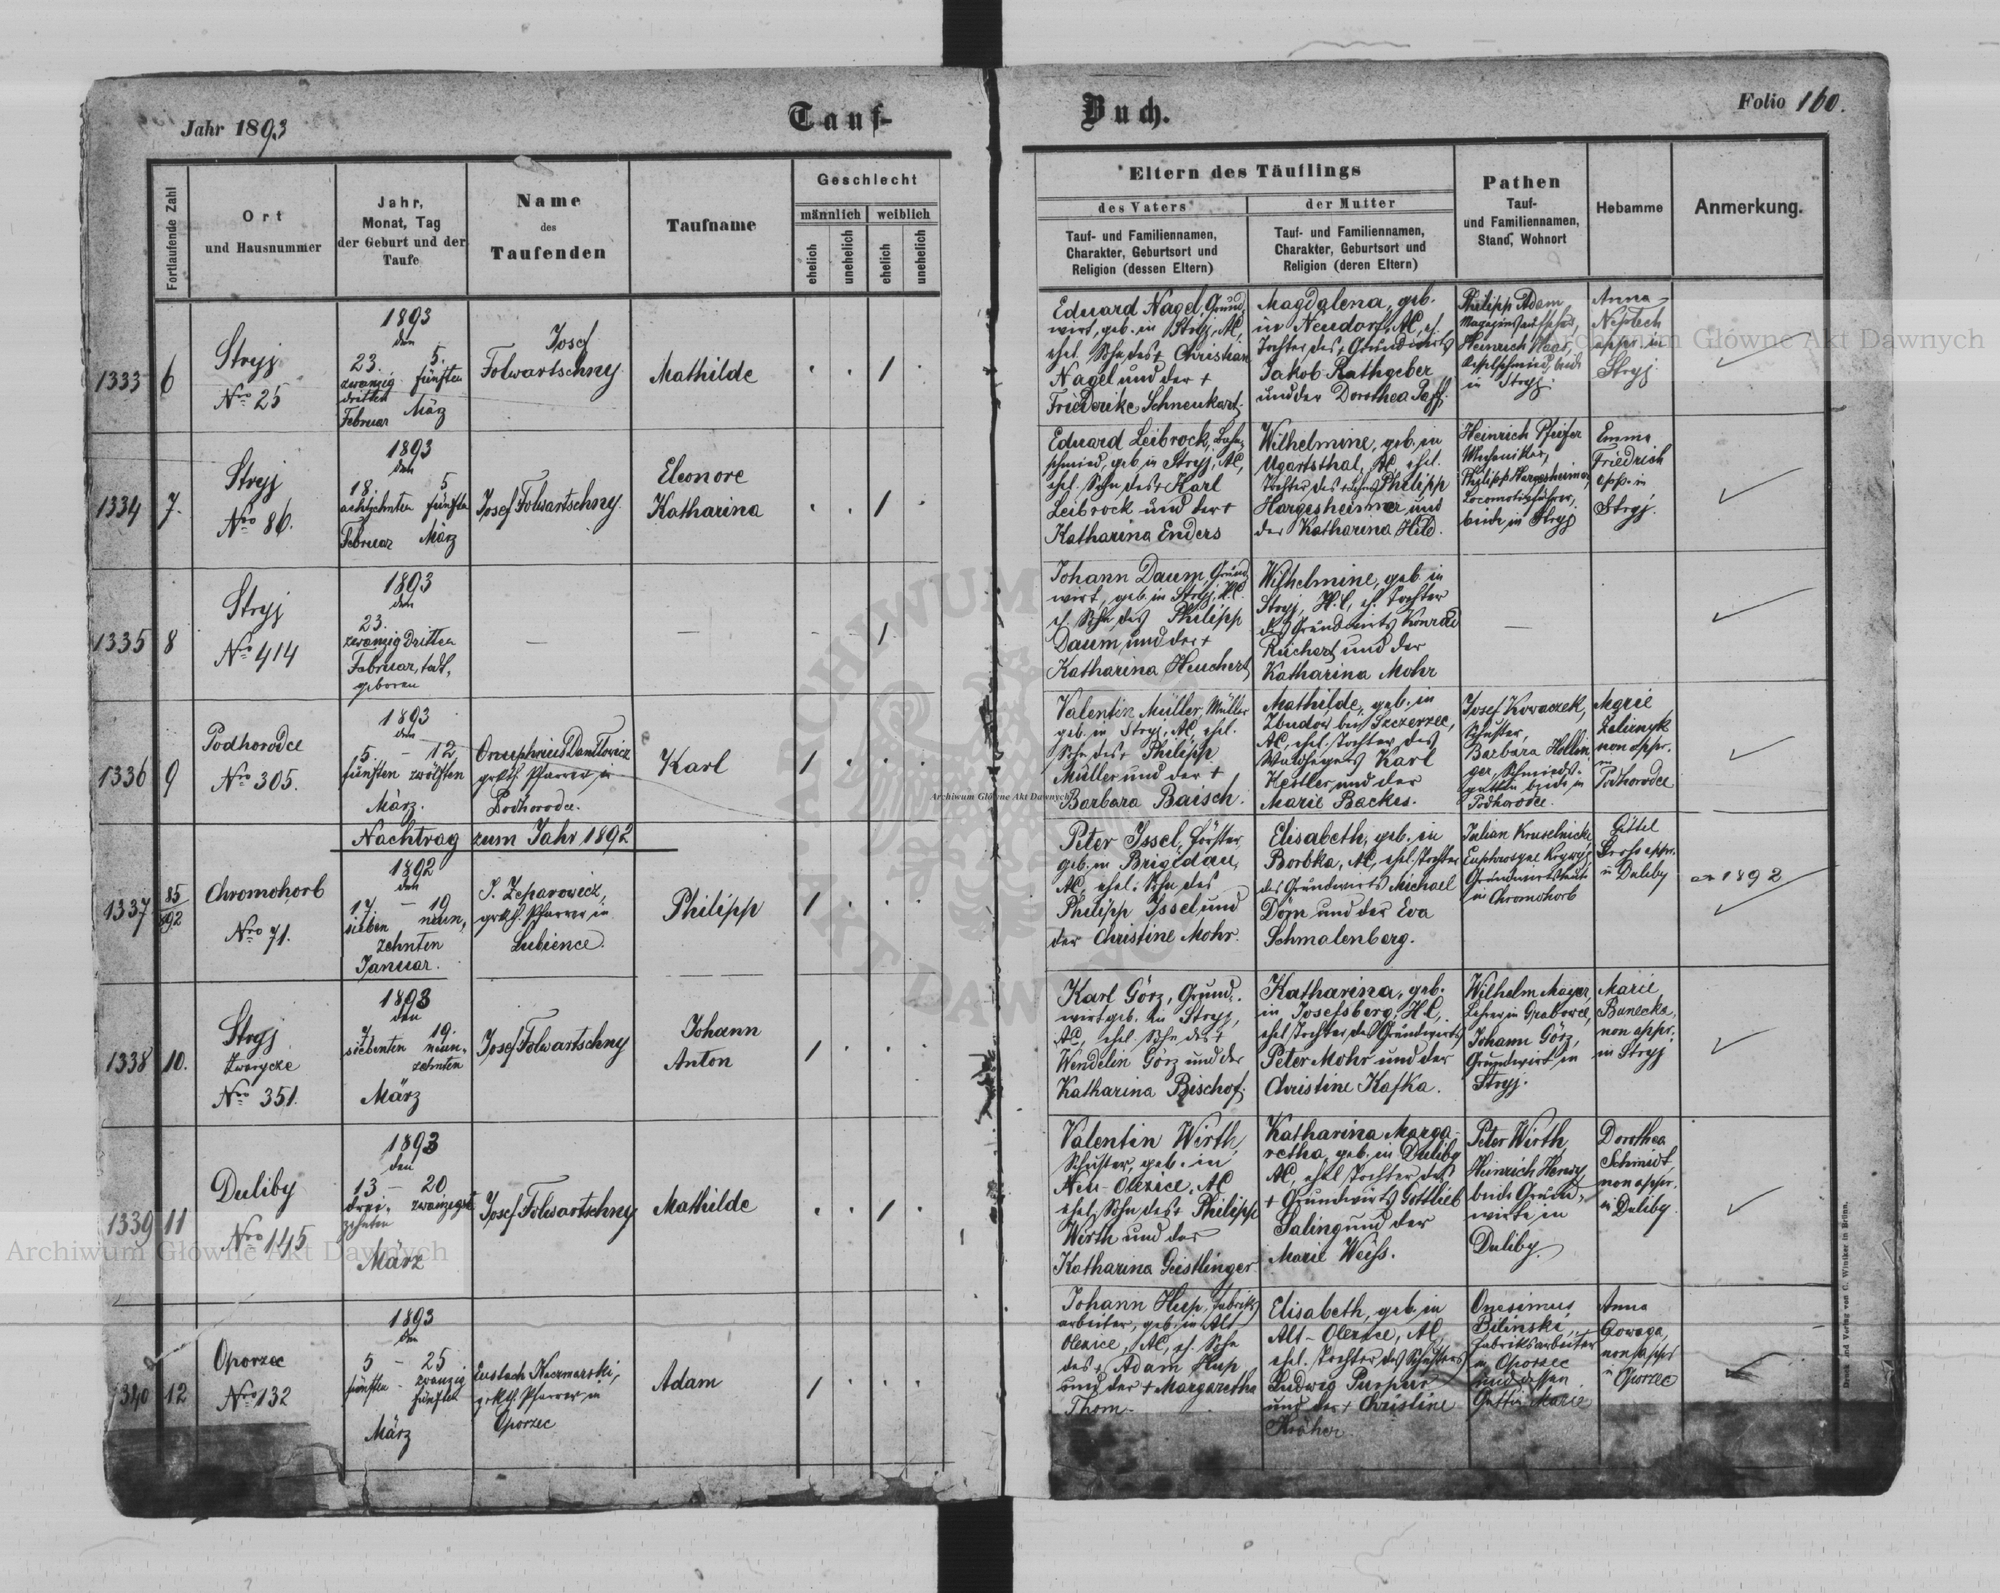 Jahr 1893
Tauf-
Buch.
Folio 160.
Fortlaufende Zahl
Ort
und Hausnummer
Jahr,
Monat, Tag
der Geburt und der
Taufe
Name
des
Taufenden
Taufname
Geschlecht
männlich weiblich
ehelich unehelich ehelich unehelich
Eltern des Täuflings
des Vaters
Tauf- und Familiennamen,
Charakter, Geburtsort und
Religion (dessen Eltern)
der Mutter
Tauf- und Familiennamen,
Charakter, Geburtsort und
Religion (deren Eltern)
Pathen
Tauf-
und Familiennamen,
Stand, Wohnort
Hebamme
Anmerkung.
1333 6
Stryj
Nro 25
1893
den
23. 5.
zwanzig fünften
dritten
Februar März
Josef
Folwartschny
Mathilde
1
Eduard Nagel, Grund
wirt, geb. in Stryj, AC,
ehel. Sohn des + Christian
Nagel und der +
Friederike Schneukert.
Magdalena, geb.
in Neudorf, AC, e.
Tochter des + Grundwirts
Jakob Rathgeber
und der Dorothea
Philipp Adam
Heinrich Haas
in Stryj.
Anna
appr. in
Stryj
1334 7.
Stryj
Nro 86.
1893
den
18. 5
achtzehnten fünften
Februar März
Josef Folwartschny
Eleonore
Katharina
1
Eduard Leibrock,
schmied, geb. in Stryj, AC,
ehel. Sohn des + Karl
Leibrock und der +
Katharina Enders
Wilhelmine, geb. in
Ugartsthal, AC, ehel.
Tochter des Philipp
Hargesheimer und
der Katharina Hild.
Heinrich Pfeifer
Philipp Hargesheimer,
Locomotivführer,
beide in Stryj
Emma
Friedrich
app. in
Stryj.
1335 8
Stryj
Nro 414
1893
den
23.
zwanzig dritten
Februar, todt,
geboren
—
—
1
Johann Daum, Grund
wirt, geb. in Stryj, H.C.
e. Sohn des Philipp
Daum, und der +
Katharina Heuchert
Wilhelmine, geb. in
Stryj, H.C., eh. Tochter
des Grundwirts Konrad
Reichert und der
Katharina Mohr
—
1336 9
Podhorodce
Nro 305.
1893
den
5. — 12
fünften zwölften
März.
Onuphrius Daniłowicz
grkth. Pfarrer in
Podhorodce.
Karl
1
Valentin Müller, Müller
geb. in Stryj, AC, ehel.
Sohn des + Philipp
Müller und der +
Barbara Baisch.
Mathilde, geb. in
bei Szczerzec,
AC, ehel. Tochter des
Waldhegers Karl
Kestler und der
Marie Backes.
Josef Kowaczek,
Schuster,
Barbara Hollin
ger, Schmieds-
gattin beide in
Podhorodce.
Marie
non appr.
in
Podhorodce
Nachtrag zum Jahr 1892
1337 85/892
Chromohorb
Nro 71.
1892
den
17 — 19
sieben neun,
zehnten
Januar.
J. Zeparowicz,
grkth. Pfarrer in
Lubience.
Philipp
1
Peter Issel, Förster
geb. in Brigidau,
AC, ehel. Sohn des
Philipp Issel und
der Christine Mohr.
Elisabeth, geb. in
Borbka, AC, ehel. Tochter
des Grundwirts Michael
Döm und der Eva
Schmalenberg.
Julian Kruselnicki,
Grundwirtsleute
in Chromohorb
Gittel
appr.
in Duliby
1892
1338 10.
Stryj
Zwarycze
Nro 351.
1893
den
7. 19.
siebenten neun-
zehnten
März
Josef Folwartschny
Johann
Anton
1
Karl Görz, Grund-
wirt geb. in Stryj,
AC, ehel. Sohn des +
Wendelin Görz und der
Katharina Bischof.
Katharina, geb.
in Josefsberg, H.C.,
ehel. Tochter des Grundwirts
Peter Mohr und der
Christine Kafka.
Wilhelm Mayer,
Lehrer in Grabowce,
Johann Görz,
Grundwirt in
Stryj.
Marie
Banecka,
non appr.
in Stryj
1339 11
Duliby
Nro 145
1893
den
13 — 20
drei- zwanzigst
zehnten
März
Josef Folwartschny
Mathilde
1
Valentin Wirth,
Schuster, geb. in
Neu-Olexice, AC
ehel. Sohn des + Philipp
Wirth und der
Katharina Geistlinger
Katharina Marga-
retha, geb. in Duliby
AC, ehel. Tochter des
+ Grundwirts Gottlieb
Saling und der
Marie Weiss.
Peter Wirth,
Heinrich Henry
beide Grund-
wirte in
Duliby.
Dorothea
Schmidt,
non appr.
in Duliby.
1340 12
Oporzec
Nro 132
1893
den
5 — 25
fünften - zwanzig
fünften
März
Eustach Kaczmarski,
grkth. Pfarrer in
Oporzec
Adam
1
Johann Hup, Fabriks
arbeiter, geb. in Alt
Olexice, AC, eh. Sohn
des + Adam Hup
und der + Margaretha
Thom.
Elisabeth, geb. in
Alt-Olexice, AC,
ehel. Tochter des Schusters
Ludwig Purpur
und der + Christine
Kröher.
Onesimus
Biliński,
Fabriksarbeiter
in Oporzec
und dessen
Gattin Marie
Anna
non appr.
in Oporzec
Druck und Verlag von C. Winiker in Brünn.
Archiwum Główne Akt Dawnych
Archiwum Główne Akt Dawnych
Archiwum Główne Akt Dawnych
ARCHIWUM
AKT DAWNYCH